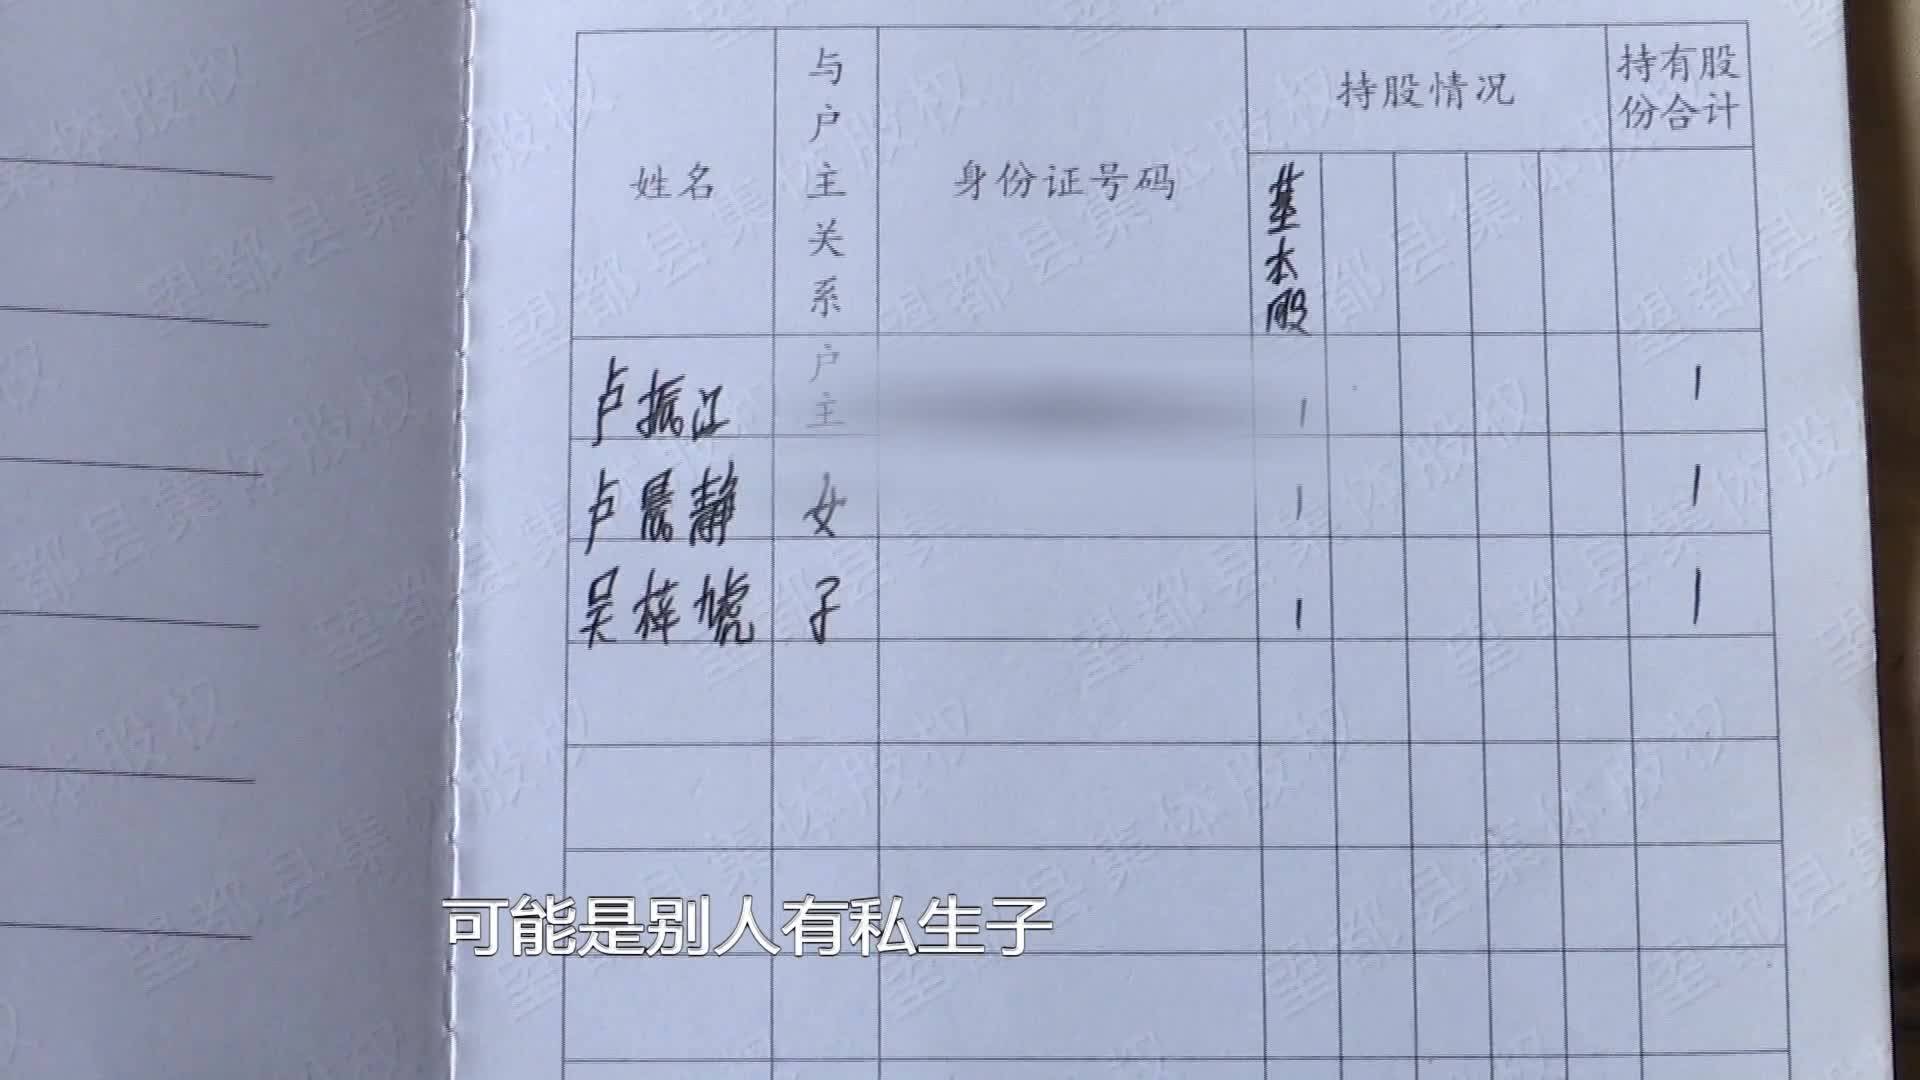 姓名 与户主关系 身份证号码 持股情况 持有股份合计
基本股
卢振江 户主 1 1
卢晨静 女 1 1
吴梓 子 1 1
可能是别人有私生子
望都县集体股权